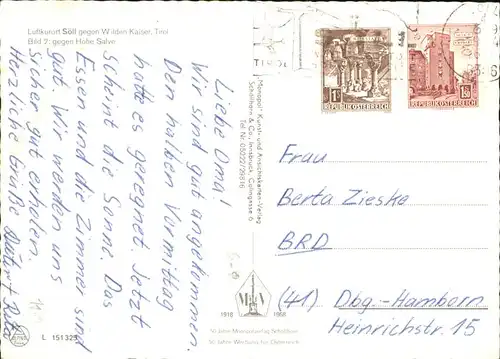 Luftkurort Söll gegen Wilden Kaiser, Tirol
Bild 2: gegen Hohe Salve
Liebe Oma!
Wir sind gut angekommen.
Den halben Vormittag
hatte es geregnet. Jetzt
scheint die Sonne. Das
Essen und die Zimmer sind
gut. Wir werden uns
sicher gut erholen.
Herzliche Grüße
"Monopol" Kunst- und Ansichtskarten-Verlag
Schöllhorn & Co., Innsbruck,
Tel. Nr. 05222/29816
TIROL
1S
REPUBLIK ÖSTERREICH
1.80
REPUBLIK ÖSTERREICH
Frau
Berta Zieske
BRD
(41) Dbg-Hamborn
Heinrichstr. 15
1918 1968
50 Jahre Monopolverlag Schöllhorn
50 Jahre Werbung für Österreich
L 151325